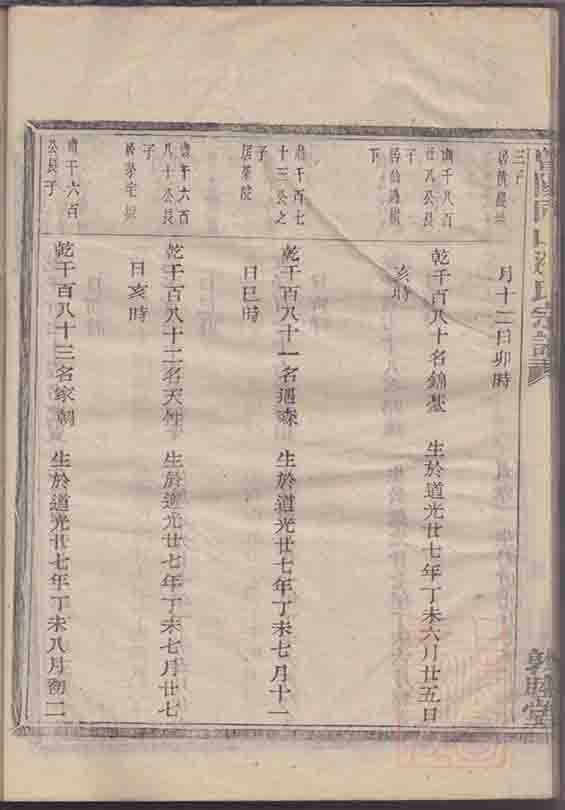 宗譜
敦睦堂
三子
月十二日卯時
庸千八百
廿八公長
子
下
乾千百八十名錦
生於道光廿七年丁未六月廿五日
亥時
庸千百七
十三公之
子
居茶院
乾千百八十一名遇森
生於道光廿七年丁未七月十二
日巳時
庸千六百
八十公長
子
居茅宅
乾千百八十二名天
生於道光廿七年丁未七月廿七
日亥時
庸千六百
公長子
乾千百八十三名家朝
生於道光廿七年丁未八月初二